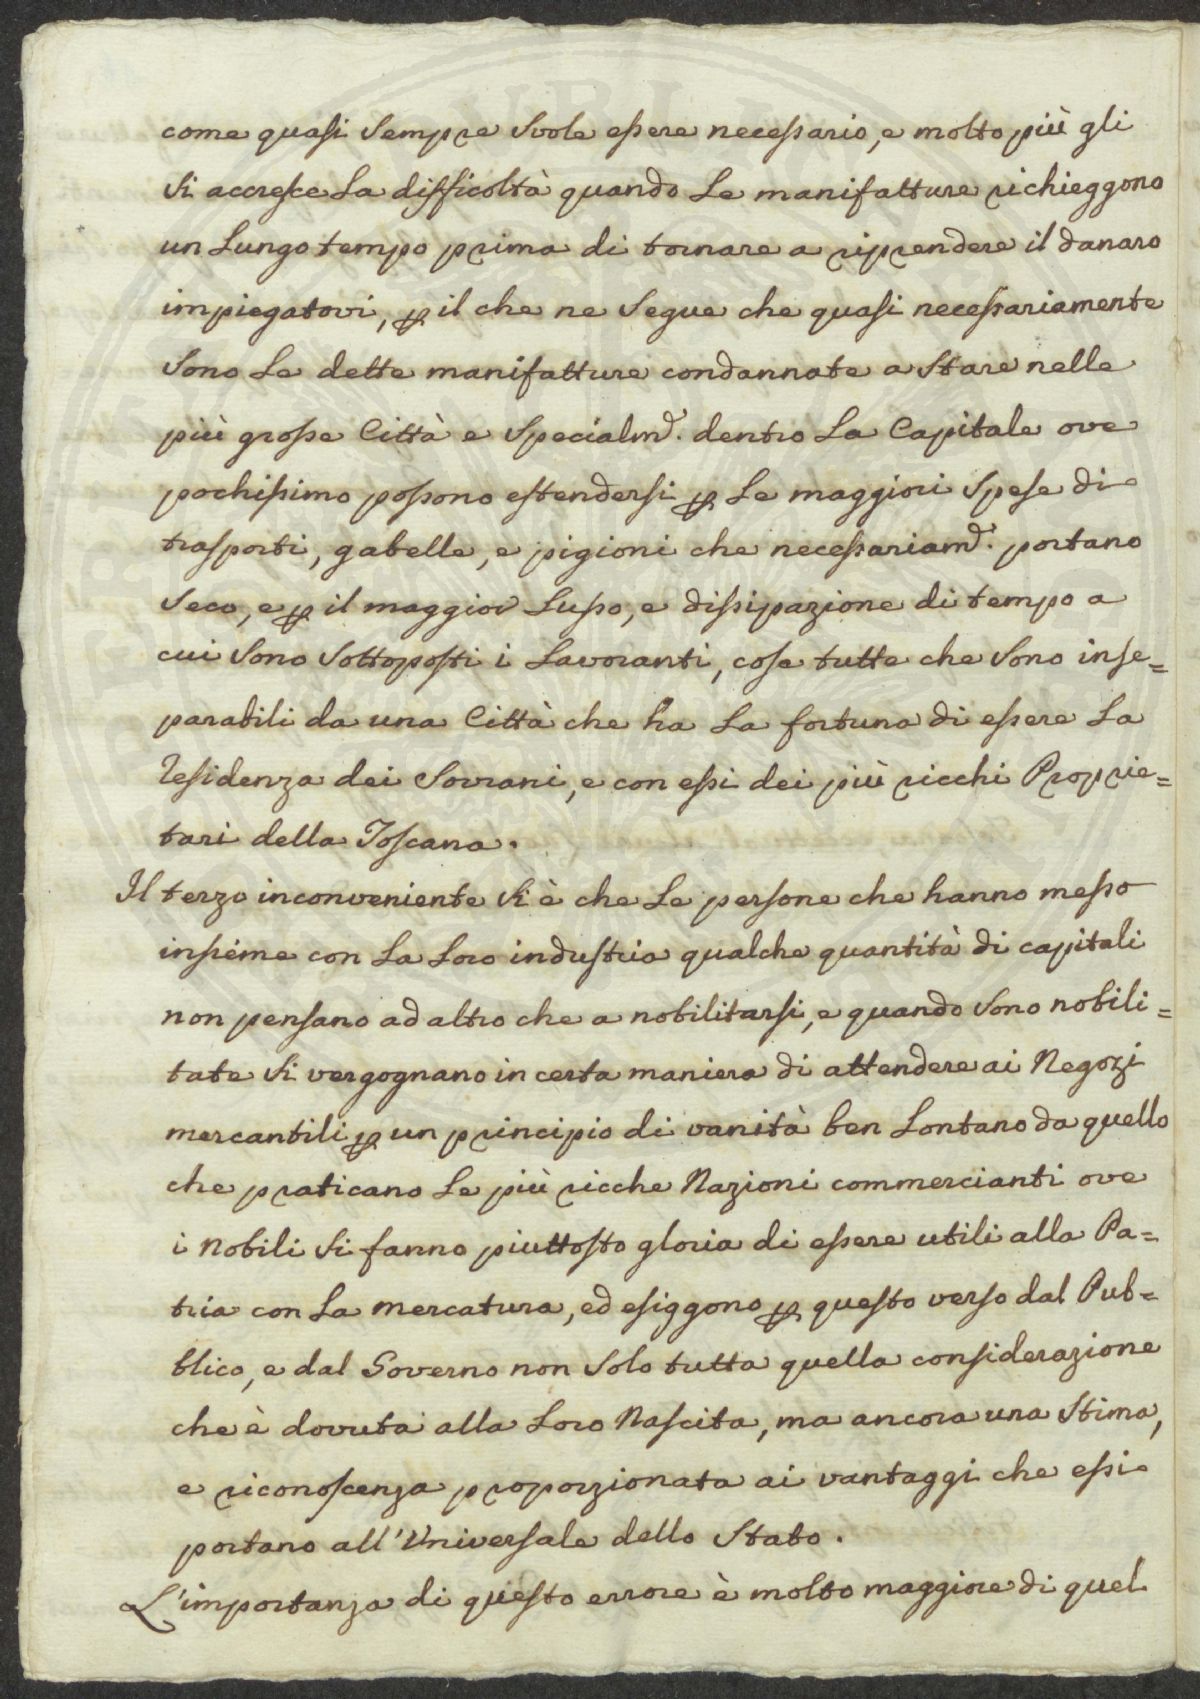 come quasi sempre suole essere necessario, e molto più gli
si accresce la difficoltà quando le manifatture richieggono
un lungo tempo prima di tornare a riprendere il danaro
impiegatovi, ꝑ il che ne segue che quasi necessariamente
sono le dette manifatture condannate a stare nelle
più grosse Città e specialmᵉ. dentro la Capitale ove
pochissimo possono estendersi ꝑ le maggiori spese di
trasporti, gabelle, e pigioni che necessariamᵉ. portano
seco, e ꝑ il maggior lusso, e dissipazione di tempo a
cui sono sottoposti i lavoranti, cose tutte che sono inse=
parabili da una Città che ha la fortuna di essere la
residenza dei Sovrani, e con essi dei più ricchi Proprie=
tari della Toscana.
Il terzo inconveniente si è che le persone che hanno messo
insieme con la loro industria qualche quantità di capitali
non pensano ad altro che a nobilitarsi, e quando sono nobili=
tate si vergognano in certa maniera di attendere ai Negozi
mercantili ꝑ un principio di vanità ben lontano da quello
che praticano le più ricche Nazioni commercianti ove
i Nobili si fanno piuttosto gloria di essere utili alla Pa=
tria con la mercatura, ed esiggono ꝑ questo verso dal Pub=
blico, e dal Governo non solo tutta quella considerazione
che è dovuta alla loro Nascita, ma ancora una stima,
e riconoscenza proporzionata ai vantaggi che essi
portano all'Universale dello Stato.
L'importanza di questo errore è molto maggiore di quel